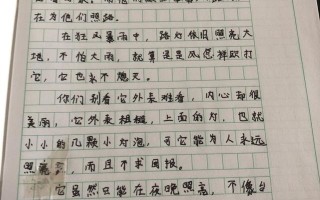 在为他们照路。
在狂风暴雨中，路灯依旧照亮大
地，不怕大雨，就算是是风怎样吹打
它，它也永不熄灭。
你们别看它外表难看，内心却很
美丽，它外表粗糙，上面的灯，也就
小小的几颗小灯泡，可它能为人永远
照亮，而且不求回报。
它虽然只能在夜晚照亮，不像白